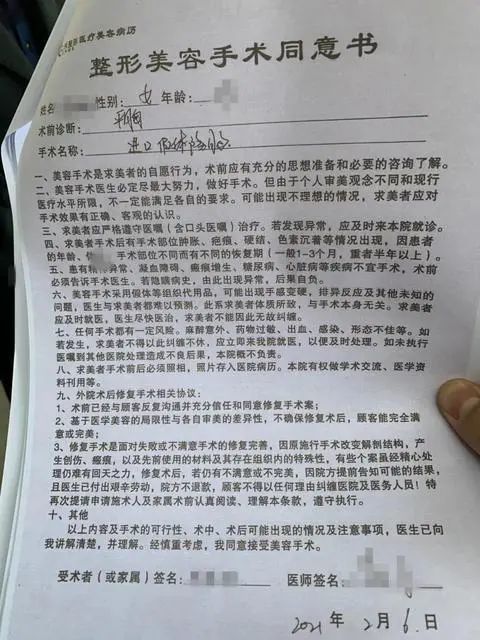 医疗美容病历
整形美容手术同意书
姓名 性别：女 年龄：
术前诊断：平胸
手术名称：进口假体隆胸
一、美容手术是求美者的自愿行为，术前应有充分的思想准备和必要的咨询了解。
二、美容手术医生必定尽最大努力，做好手术。但由于个人审美观念不同和现行
医疗水平所限，不一定能满足各自的要求。可能出现不理想的情况，求美者应对
手术效果有正确、客观的认识。
三、求美者应严格遵守医嘱（含口头医嘱）治疗。若发现异常，应及时来本院就诊。
四、求美者手术后有手术部位肿胀、疤痕、硬结、色素沉着等情况出现，因患者
的年龄、 手术部位不同而有不同的恢复期（一般1-3个月，重者半年以上）。
五、患有精神异常、凝血障碍、瘢痕增生、糖尿病、心脏病等疾病不宜手术，术前
必须告诉手术医生。若隐瞒病史，由此出现异常，后果自负。
六、美容手术采用假体等组织代用品，可能出现手感变硬，排异反应及其他未知的
问题，医生与求美者都难以预测。此系求美者体质所致，与手术本身无关。求美者
应及时就医，医生尽快医治，求美者不能因此无故纠缠。
七、任何手术都有一定风险。麻醉意外、药物过敏、出血、感染、形态不佳等。如
若发生，求美者不得以此纠缠不休，应立即来我院就医，以便及时处理。如未执行
医嘱到其他医院处理造成不良后果，本院概不负责。
八、求美者手术前后必须照相，照片存入医院病历。本院有权做学术交流、医学资
料刊用等。
九、外院术后修复手术相关协议：
1、术前已经与顾客反复沟通并充分信任和同意修复手术案；
2、基于医学美容的局限性与各自审美的差异性，不确保修复术后，顾客能完全满
意或完美；
3、修复手术是面对失败或不满意手术的修复完善，因原施行手术改变解剖结构，产
生创伤、瘢痕，以及先前使用的材料及其存在组织内的特殊性，有些个案虽经精心处
理仍难有回天之力，修复术后，若仍有不满意或不完美，因院方提前告知可能的结果，
且医生已付出艰辛劳动，院方不退款，顾客不得以任何理由纠缠医院及医务人员！特
再次提请申请施术人及家属术前认真阅读、理解本条款，遵守执行。
十、其他
以上内容及手术的可行性、术中、术后可能出现的情况及注意事项，医生已向
我讲解清楚，并理解。经慎重考虑，我同意接受美容手术。
受术者（或家属）签名： 医师签名：
2021年2月6日